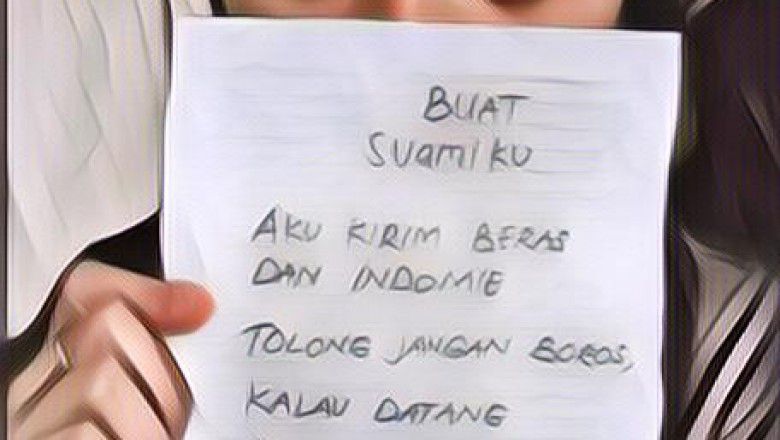 BUAT
SUAMIKU
AKU KIRIM BERAS
DAN INDOMIE
TOLONG JANGAN BOROS,
KALAU DATANG